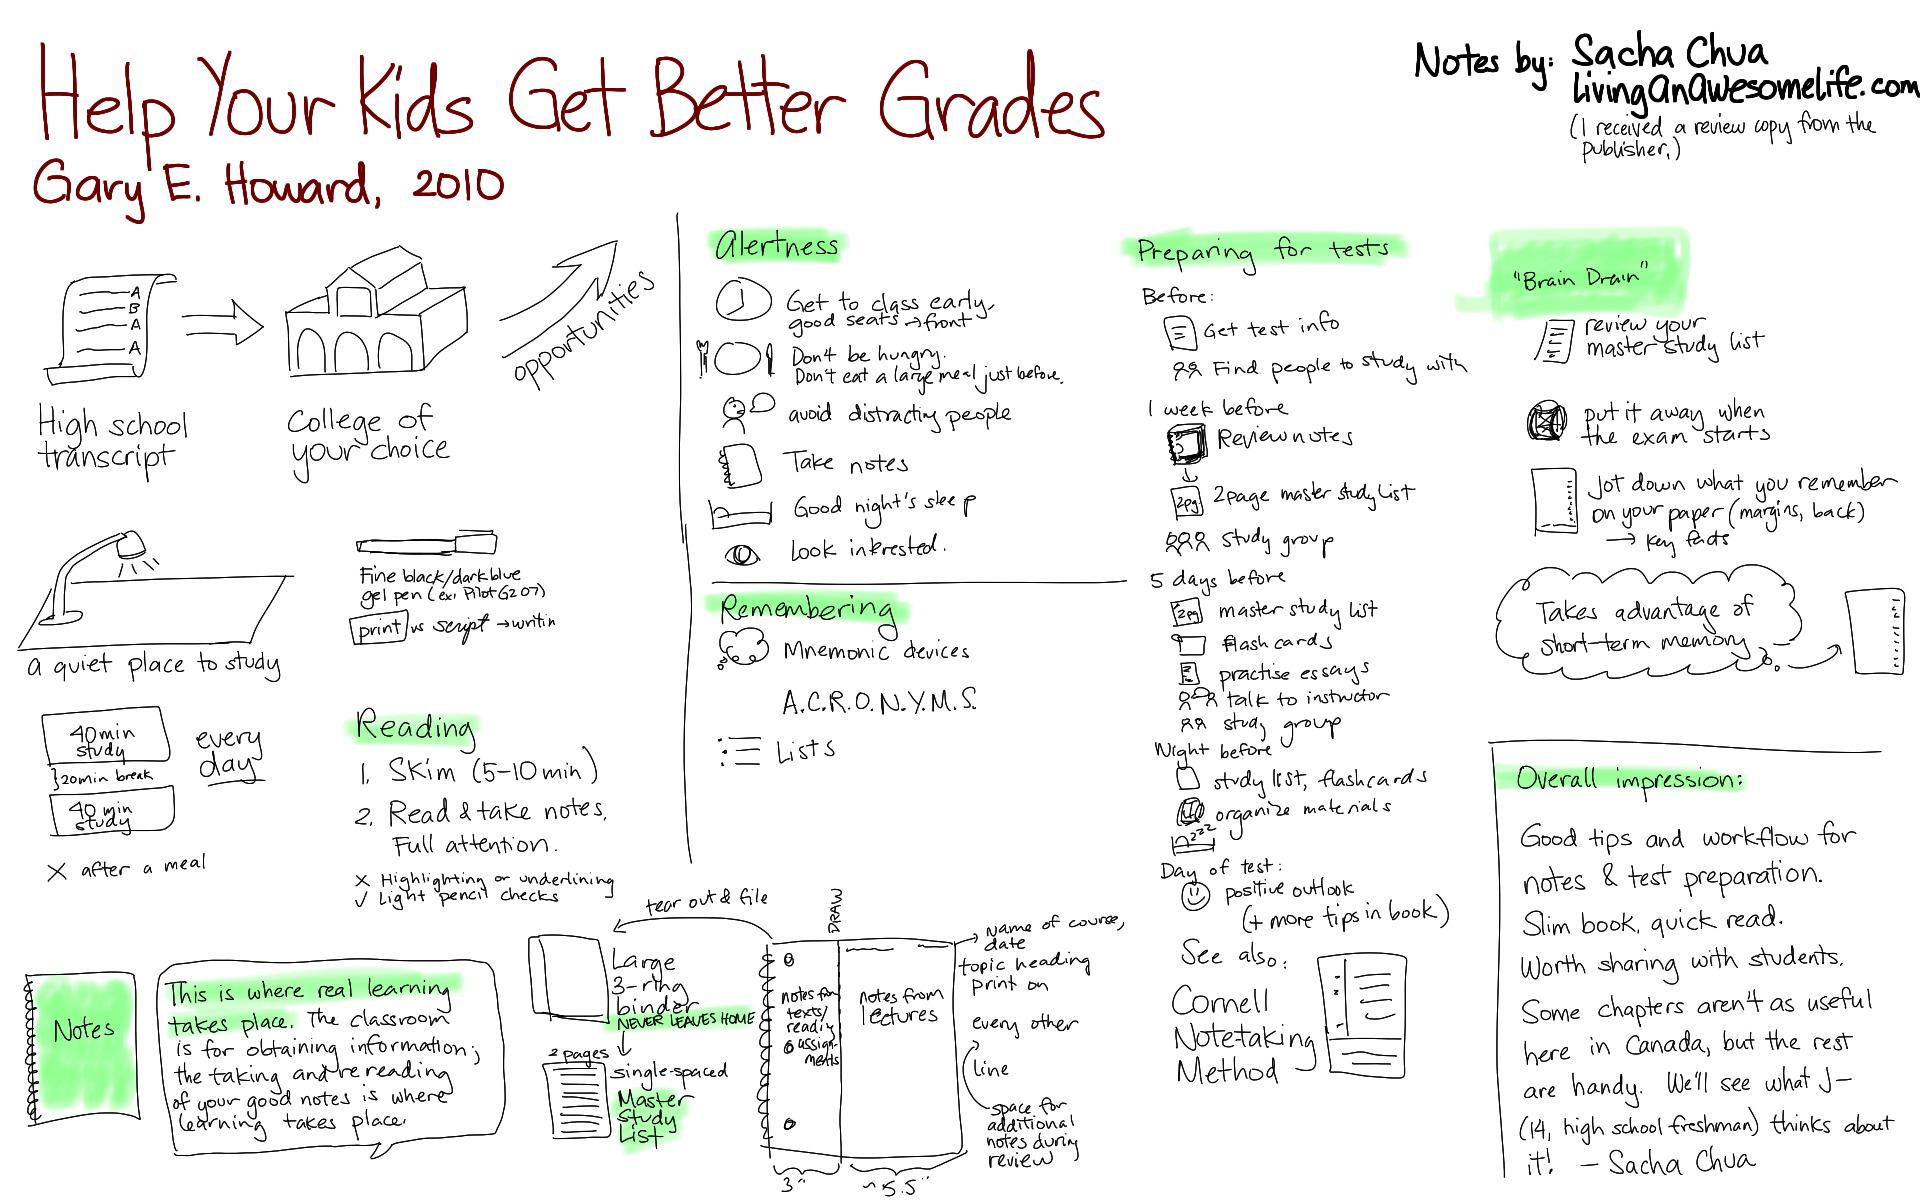 Help Your Kids Get Better Grades
Gary E. Howard, 2010
Notes by: Sacha Chua
livingAnAwesomelife.com
(I received a review copy from the
publisher.)
A
B
A
A
High school
transcript
College of
your choice
opportunities
a quiet place to study
Fine black/dark blue
gel pen (ex. Pilot G2 07)
print vs script → writin
40 min
study
}20 min break
40 min
study
every
day
X after a meal
Reading
1. Skim (5-10 min)
2. Read & take notes.
Full attention.
X Highlighting or underlining
✓ Light pencil checks
Notes
This is where real learning
takes place. The classroom
is for obtaining information;
the taking and rereading
of your good notes is where
learning takes place.
tear out & file
Large
3-ring
binder
NEVER LEAVES HOME
2 pages
single-spaced
Master
Study
List
DRAW
notes for
texts/
readin
assign-
ments
notes from
lectures
3"
~5.5"
name of course,
date
topic heading
print on
every other
line
space for
additional
notes during
review
Alertness
Get to class early-
good seats → front
Don't be hungry.
Don't eat a large meal just before.
avoid distracting people
Take notes
Good night's sleep
Look interested.
Remembering
Mnemonic devices
A.C.R.O.N.Y.M.S.
Lists
Preparing for tests
Before:
Get test info
Find people to study with
1 week before
Review notes
2pg 2page master study list
study group
5 days before
2pg master study list
flash cards
practise essays
talk to instructor
study group
Night before
study list, flashcards
organize materials
zzz
Day of test:
positive outlook
(+ more tips in book)
See also:
Cornell
Notetaking
Method
"Brain Drain"
review your
master study list
put it away when
the exam starts
Jot down what you remember
on your paper (margins, back)
→ key facts
Takes advantage of
short-term memory
Overall impression:
Good tips and workflow for
notes & test preparation.
Slim book, quick read.
Worth sharing with students.
Some chapters aren't as useful
here in Canada, but the rest
are handy. We'll see what J-
(14, high school freshman) thinks about
it! - Sacha Chua